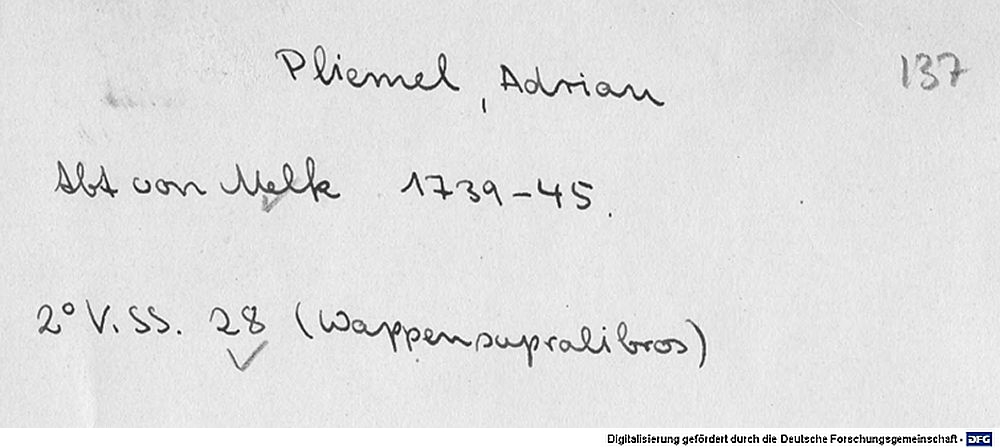 Pliemel, Adrian 137
Abt von Melk 1739-45.
2° V. SS. 28 (Wappensupralibros)
Digitalisierung gefördert durch die Deutsche Forschungsgemeinschaft - DFG